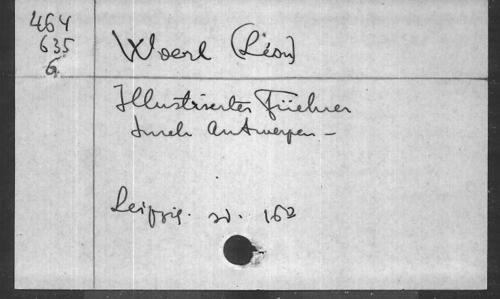 464
635
G
Woerl (Léon)
Illustrierter Füehrer
durch Antwerpen –
Leipzig. sd. 16°